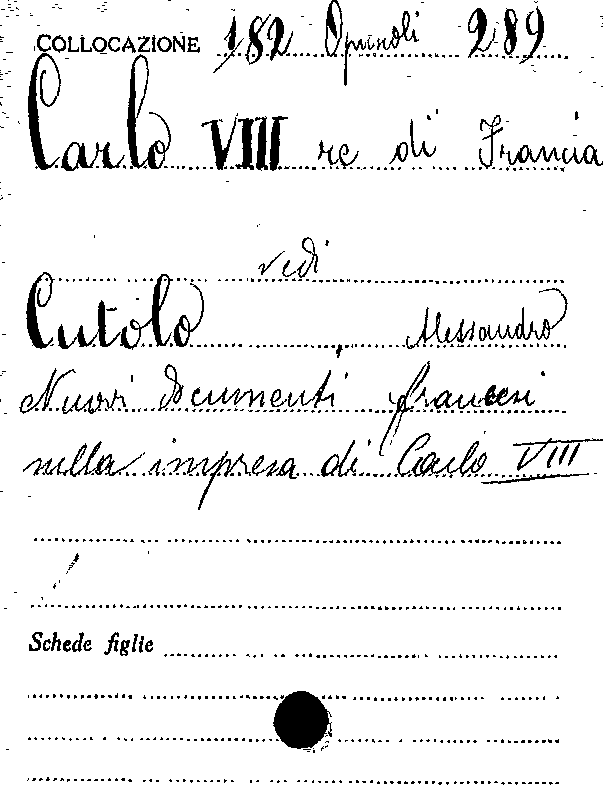 COLLOCAZIONE 182 Opuscoli 289
Carlo VIII re di Francia
vedi
Cutolo, Alessandro
Nuovi documenti francesi
nella impresa di Carlo VIII
Schede figlie